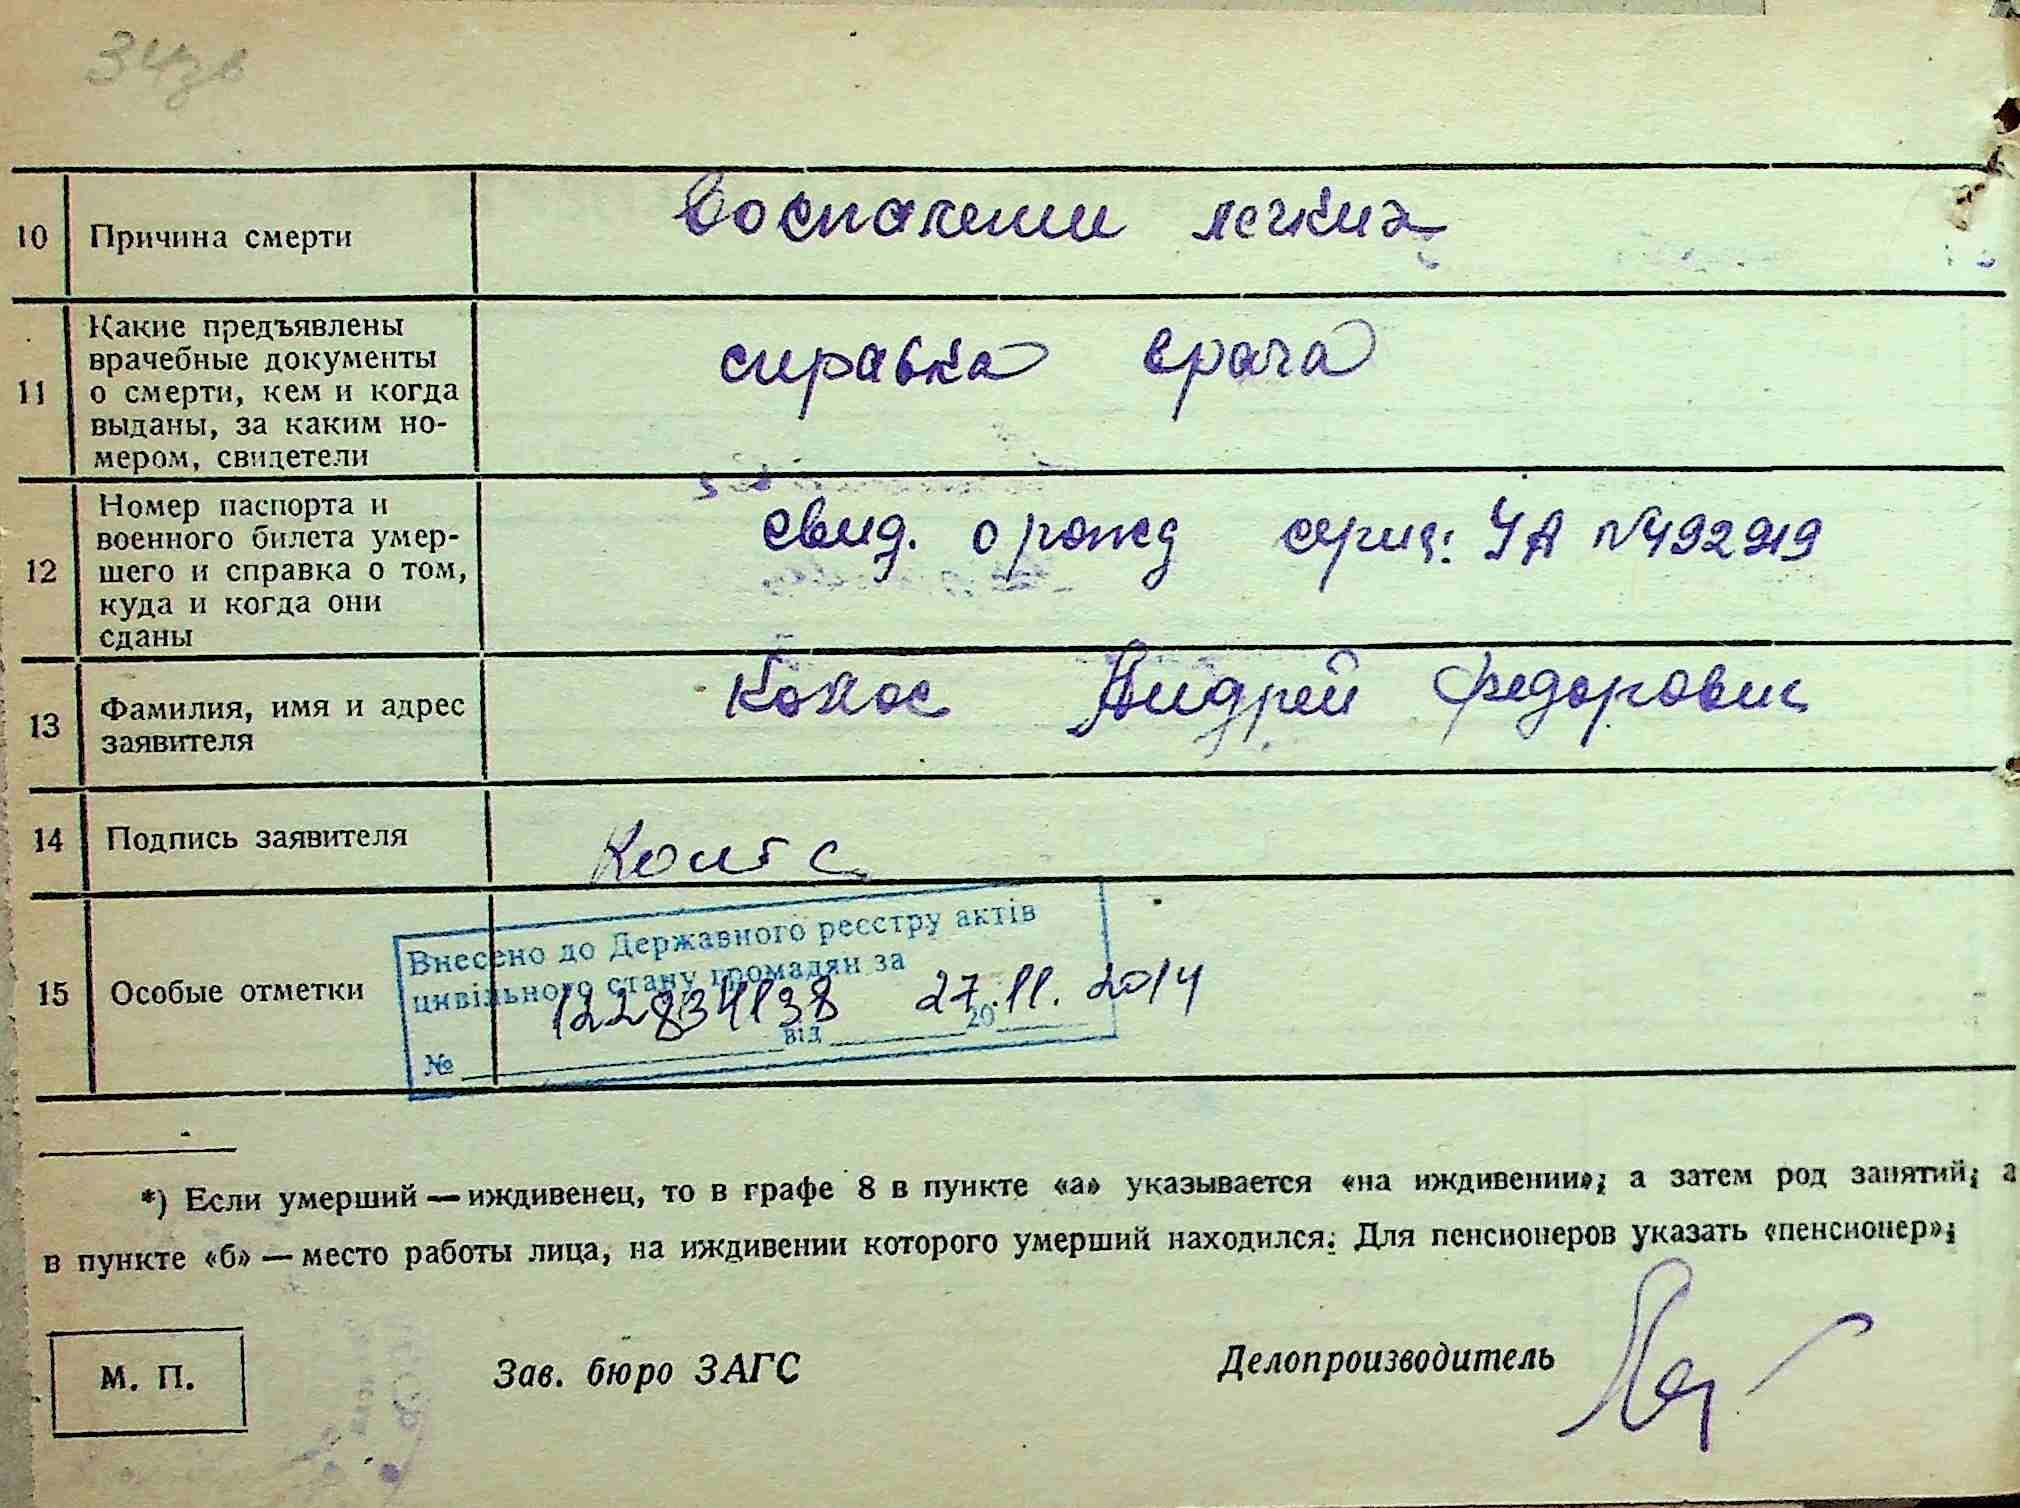 34зв
10 Причина смерти Воспалении легких
11 Какие предъявлены
врачебные документы
о смерти, кем и когда
выданы, за каким но-
мером, свидетели
справка врача
12 Номер паспорта и
военного билета умер-
шего и справка о том,
куда и когда они
сданы
свид. о рожд серия: УА №492919
13 Фамилия, имя и адрес
заявителя
Андрей Федорович
14 Подпись заявителя
15 Особые отметки
Внесено до Державного реєстру актів
цивільного стану громадян за
№ 122834138 від 27.11.2014 20
*) Если умерший — иждивенец, то в графе 8 в пункте «а» указывается «на иждивении»; а затем род занятий; а
в пункте «б» — место работы лица, на иждивении которого умерший находился. Для пенсионеров указать «пенсионер»;
М. П.
Зав. бюро ЗАГС
Делопроизводитель